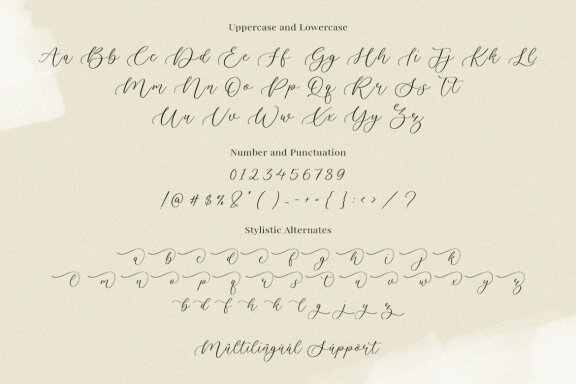 Uppercase and Lowercase
Aa Bb Cc Dd Ee Ff Gg Hh Ii Jj Kk Ll
Mm Nn Oo Pp Qq Rr Ss Tt
Uu Vv Ww Xx Yy Zz
Number and Punctuation
0123456789
Stylistic Alternates
a b c d e f g h i j k
l m n o p q r s t u v w x y z
b d f h k l g j y z
Mültilingüál Süppört